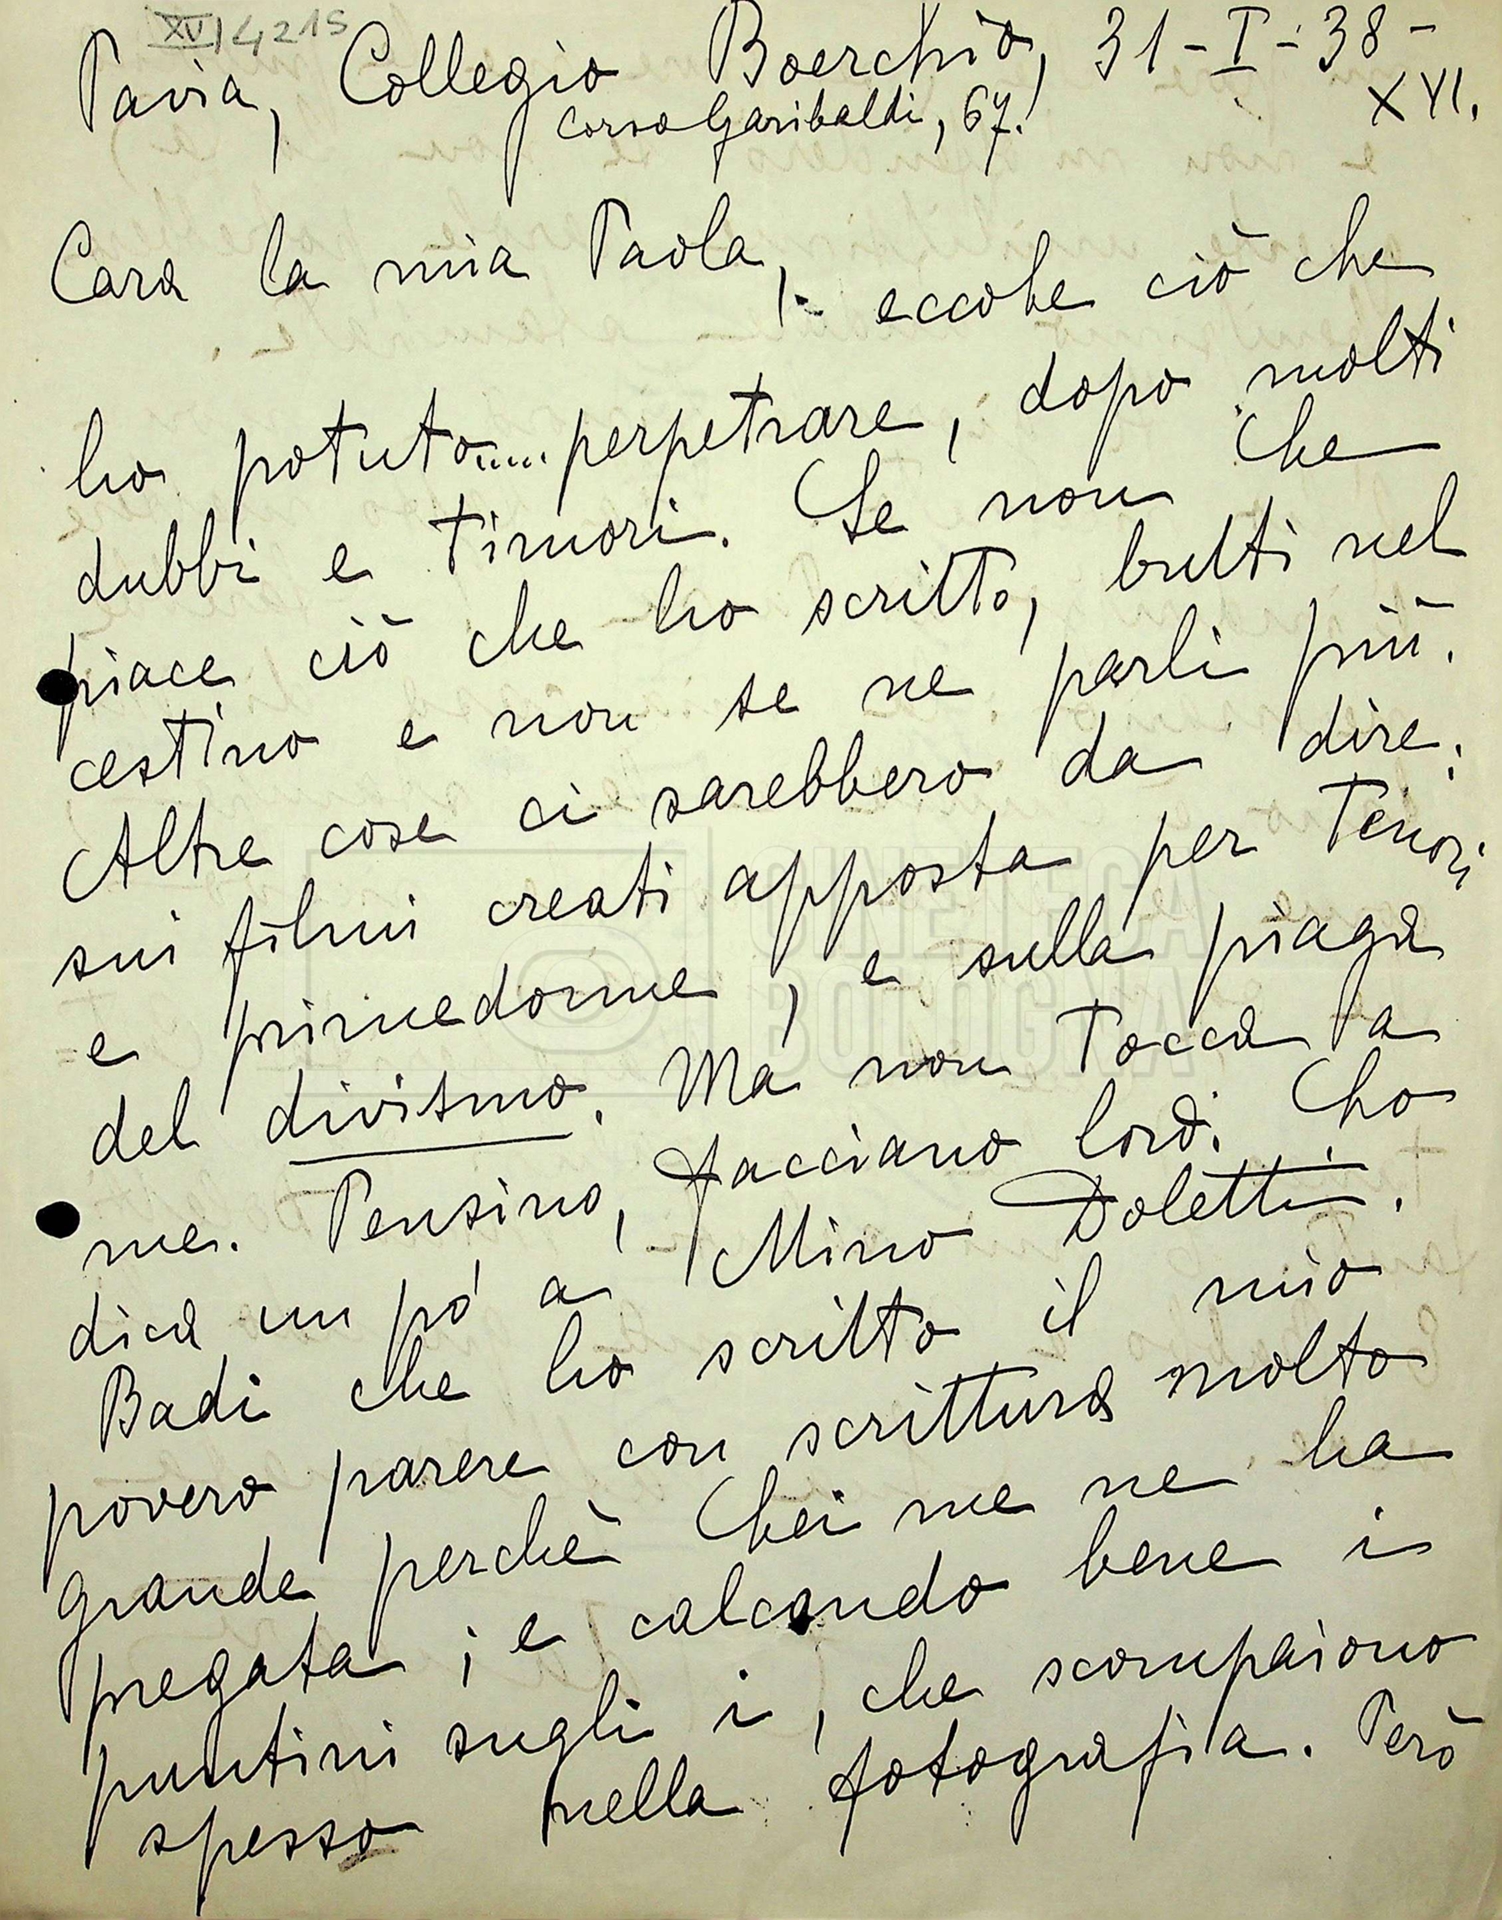 XV/4215
Pavia, Collegio Boerchio, 31-I-38-
XVI.
corso Garibaldi, 67.
Cara la mia Paola,
eccole ciò che
ho potuto..... perpetrare, dopo molti
dubbi e timori. Se non che
piace ciò che ho scritto, butti nel
cestino e non se ne parli più.
Altre cose ci sarebbero da dire;
sui films creati apposta per Tenori
e primedonne, e sulla piaga
del divismo. Ma non tocca a
me. Pensino, facciano loro. Lo
dica un pó a Mino Doletti.
Badi che ho scritto il mio
povero parere con scrittura molto
grande perchè Lei me ne ha
pregata; e calcando bene i
puntini sugli i, che scompaiono
spesso nella fotografia. Però
CINETECA
BOLOGNA